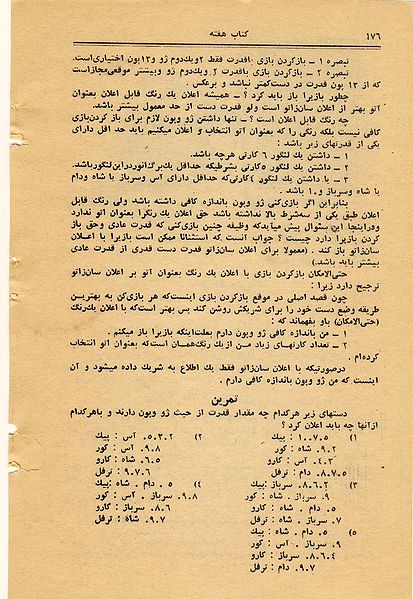 ۱۷۶
کتاب هفته
تبصره ۱ ـ بازکردن بازی باقدرت فقط ۲ویك‌دوم ژو و۱۳پون اختیاری‌است.
تبصره ۲ ـ بازکردن بازی باقدرت ۲ ویك‌دوم ژو وبیشتر موقعی‌مجازاست
که از ۱۳ پون قدرت در دست‌کمتر نباشد و برعکس.
چطور بازیرا باز باید کرد؟ ـ همیشه اعلان یك رنگ قابل اعلان بعنوان
آتو بهتر از اعلان سان‌زاتو است ولو قدرت دست از حد معمول بیشتر باشد.
چه رنگ قابل اعلان است؟ ـ تنها داشتن ژو وپون لازم برای باز کردن‌بازی
کافی نیست بلکه رنگی را که بعنوان آتو انتخاب و اعلان میکنیم باید حد اقل دارای
یکی از قدرتهای زیر باشد:
۱ ـ داشتن یك لنگور ۶ کارتی هرچه باشد.
۲ ـ داشتن یك لنگور ۵کارتی بشرطیکه حداقل یك‌برگ‌آنوردراین‌لنگورباشد.
۳ ـ با داشتن یك لنگور ۴کارتی‌که حداقل دارای آس وسرباز یا شاه ودام
یا شاه وسرباز و۱۰ باشد.
بنابراین اگر بازی‌کنی ژو وپون باندازه کافی داشته باشد ولی رنگ قابل
اعلان طبق یکی از سه‌شرط بالا نداشته باشد حق اعلان یك رنگرا بعنوان آتو ندارد
ودراینجا این سئوال پیش میآیدکه وظیفه چنین بازی‌کنی که قدرت عادی وحق باز
کردن بازیرا دارد چیست؟ جواب آنست که استثنائا ممکن است بازیرا با اعلان
سان‌زاتو باز کند. (معمولا برای اعلان سان‌زاتو قدرت دست قدری از قدرت عادی
بیشتر باید باشد.)
حتی‌الامکان بازکردن بازی با اعلان یك رنگ بعنوان آتو بر اعلان سان‌زاتو
ترجیح دارد زیرا:
چون قصد اصلی در موقع بازکردن بازی اینست‌که هر بازی‌کن به بهترین
طریقه وضع دست خود را برای شریکش روشن کند پس بهتر است‌که با اعلان یك‌رنگ
(حتی‌الامکان) باو بفهماند که:
۱ ـ من باندازه کافی ژو وپون دارم بعلت‌اینکه بازیرا باز میکنم.
۲ ـ تعداد کارتهای زیاد من از یك رنگ‌همان است‌که بعنوان آتو انتخاب
کرده‌ام.
درصورتیکه با اعلان سان‌زاتو فقط یك اطلاع به شریك داده میشود و آن
اینست که من ژو وپون باندازه کافی دارم.
تمرین
دستهای زیر هرکدام چه مقدار قدرت از حیث ژو وپون دارند و باهرکدام
ازآنها چه باید اعلان کرد؟
۱) ۱۰.۷.۵ : پیك
۹.۲ شاه : کور
۳.۴. آس : کارو
۸.۷.۵. دام : ترفل
۲) ۵.۳.۲. آس : پیك
۹.۸. آس : کور
۶.۵. شاه : کارو
۹.۷.۶ : ترفل
۳) ۸.۶.۲. سرباز : پیك
۹. سرباز . شاه : کور
۵. دام . شاه : کارو
۷. سرباز . شاه : ترفل
۴) ۵. دام . شاه : پیك
۹.۸. سرباز . آس : کور
۸.۶. سرباز : کارو
۹.۷. شاه : ترفل
۵) ۵. دام . شاه : پیك
۹. سرباز . آس : کور
۸.۶.۴ : کارو
۹.۷. دام : ترفل